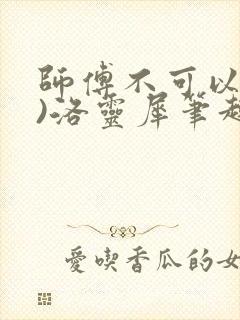 師傅不可以
)洛靈犀筆趣
愛喫香瓜的女